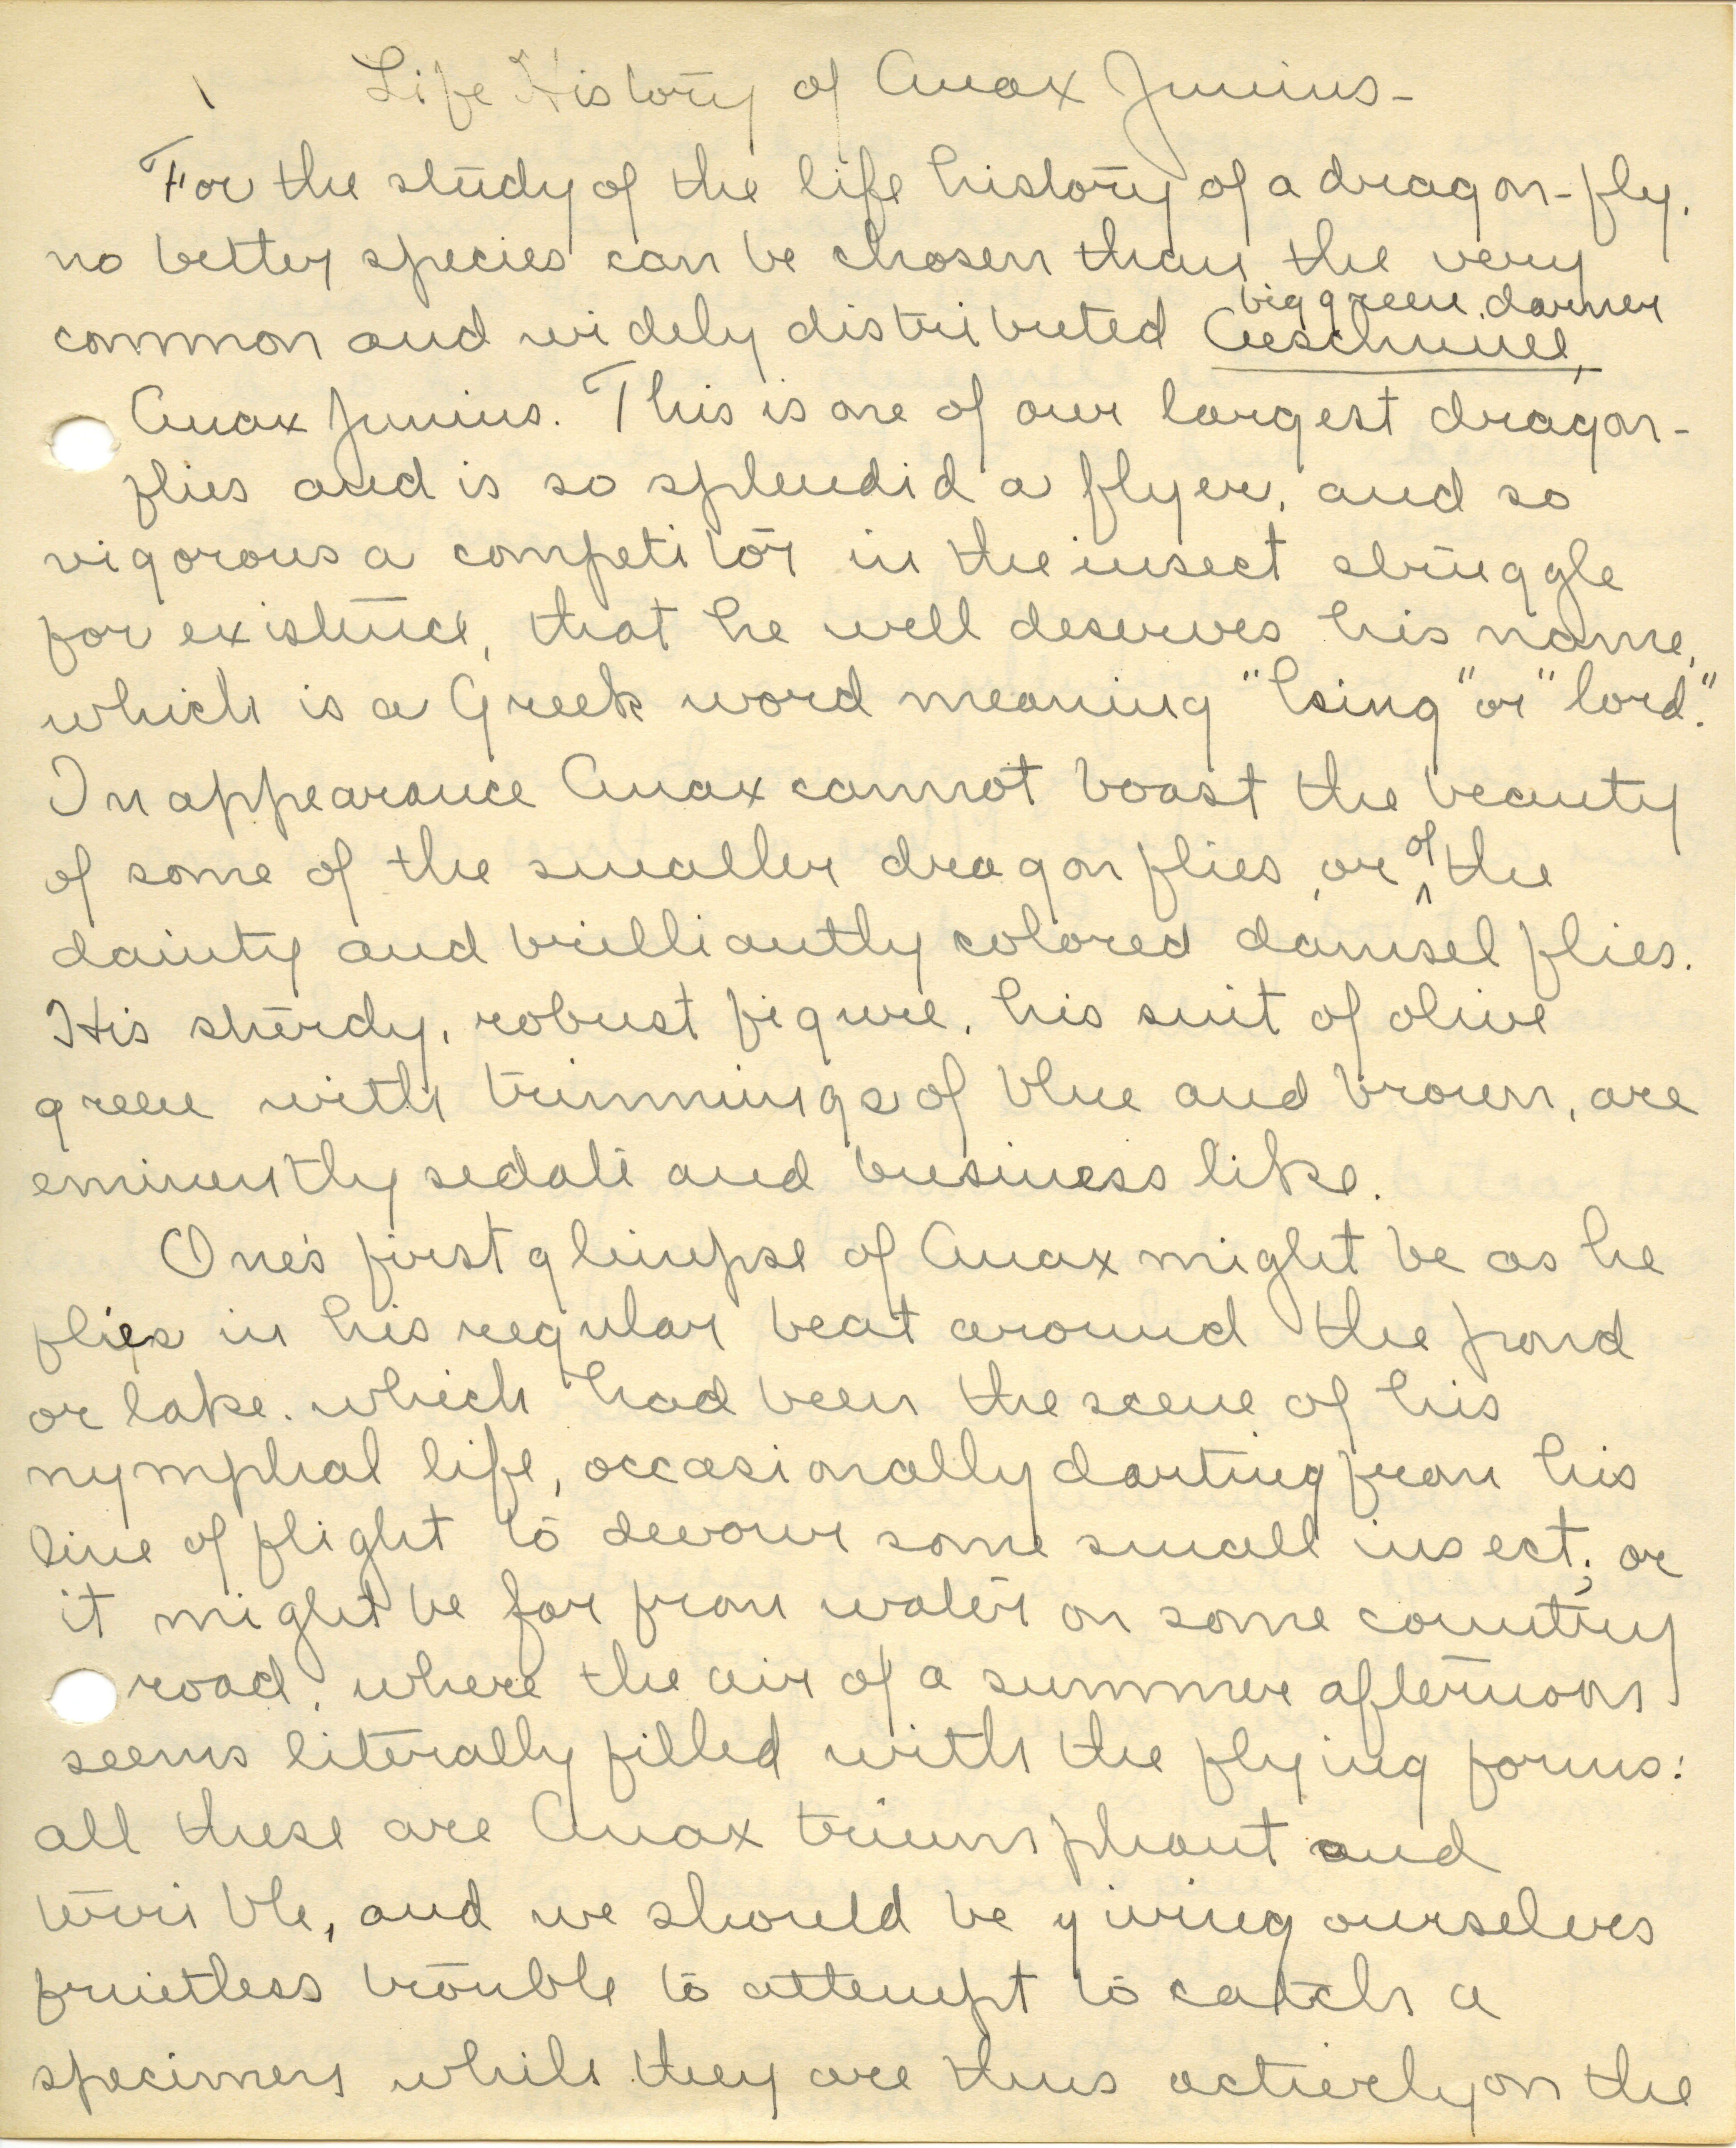 1 Life History of Anax Junius-
For the study of the life history of a dragon-fly,
no better species can be chosen than the very
big green darner
common and widely distributed Aeschnine,
Anax Junius. This is one of our largest dragon-
flies and is so splendid a flyer, and so
vigorous a competitor in the insect struggle
for existence, that he well deserves his name,
which is a Greek word meaning "king" or "lord."
In appearance Anax cannot boast the beauty
of some of the smaller dragonflies, or of the
dainty and brilliantly colored damsel flies.
His sturdy, robust figure, his suit of olive
green with trimmings of blue and brown, are
eminently sedate and business like.
One's first glimpse of Anax might be as he
flies in his regular beat around the pond
or lake. which had been the scene of his
nymphal life, occasionally darting from his
line of flight to devour some small insect; or
it might be far from water on some country
road, where the air of a summer afternoon
seems literally filled with the flying forms:
all these are Anax triumphant and
terrible, and we should be giving ourselves
fruitless trouble to attempt to catch a
specimen while they are thus actively on the